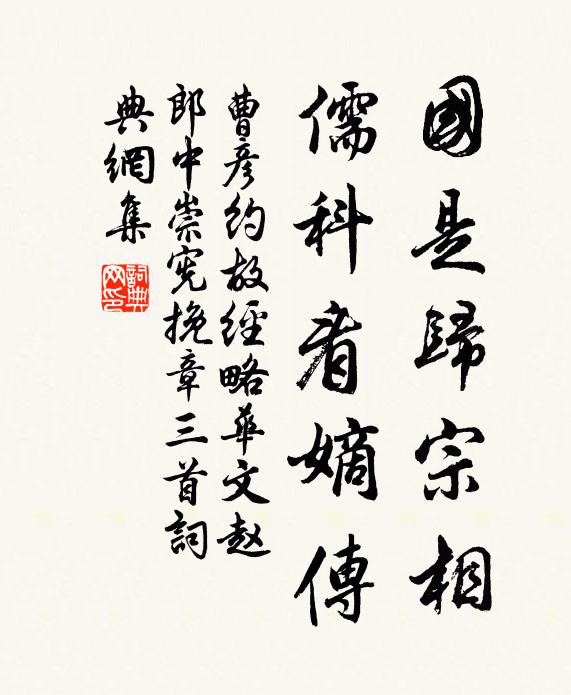 國是歸宗相
儒科看嫡傳
曹彦約故經略華文赵
郎中崇宪挽章三首詞
典網集
詞典网印